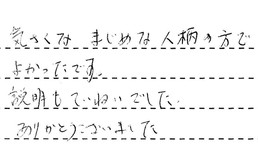 気さくな まじめな 人柄の方で
よかったです。
説明もていねいでした.
ありがとうございました